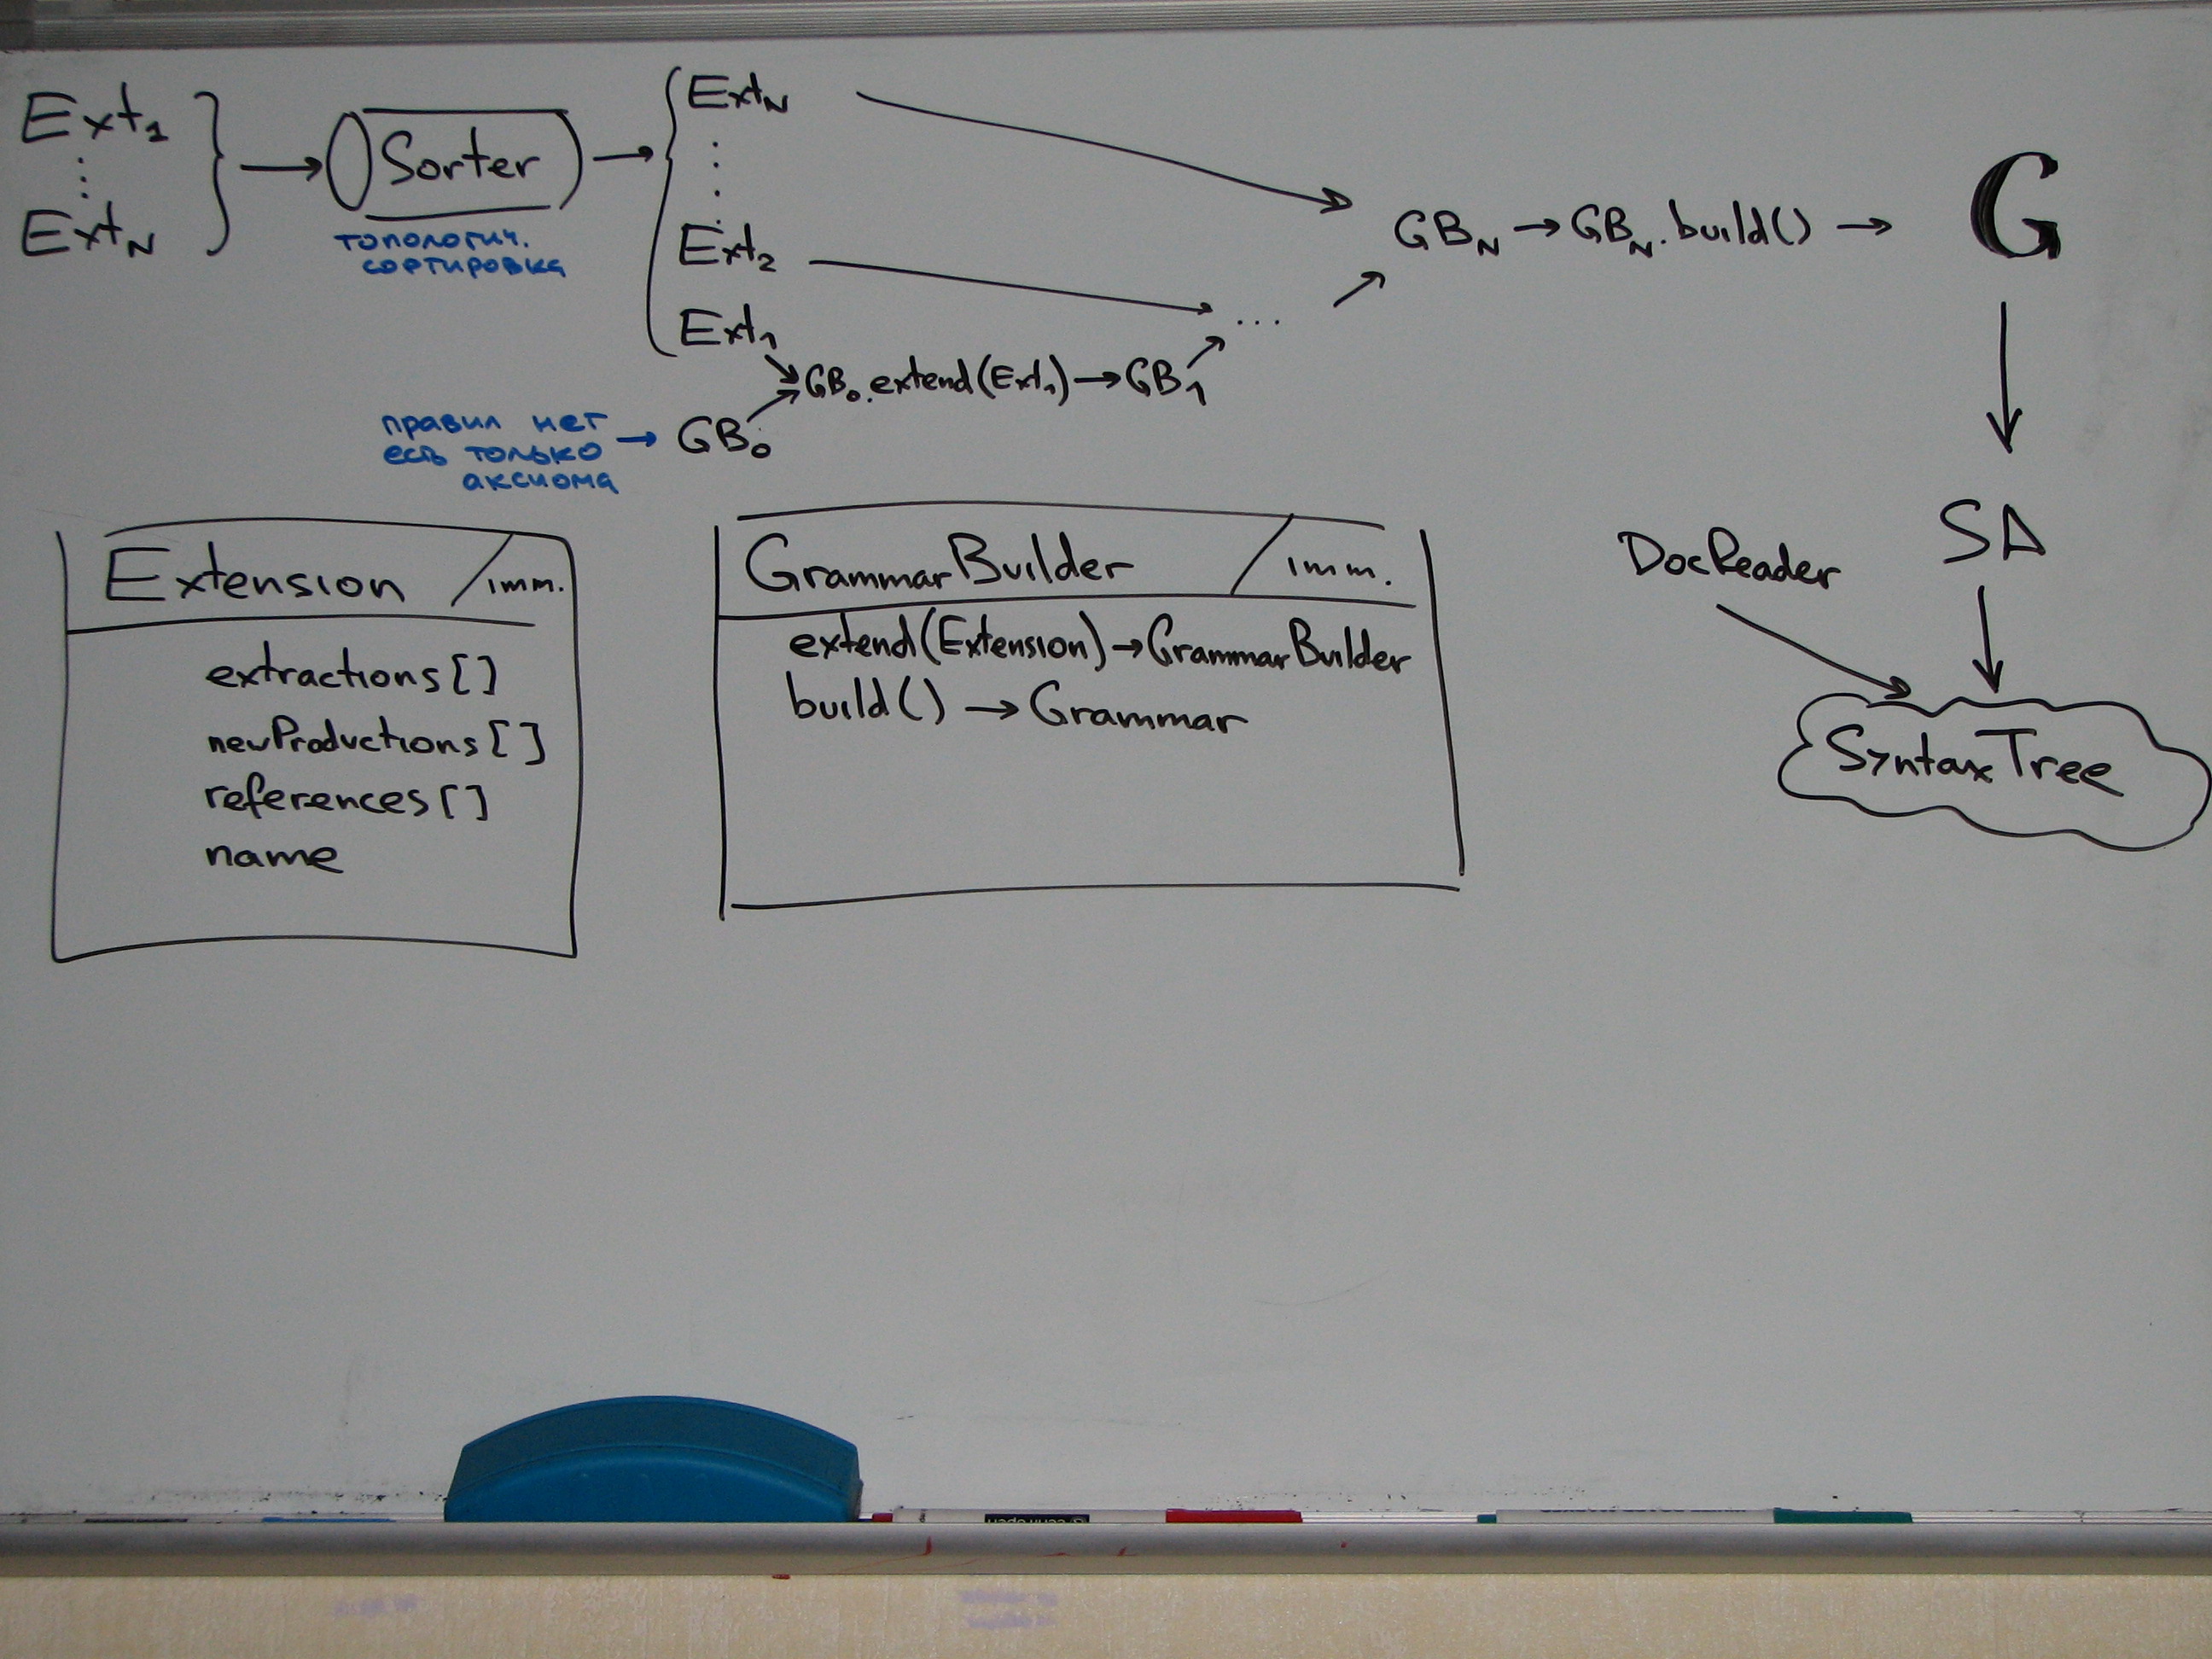 Ext1
⋮
ExtN
Sorter
топологич.
сортировка
ExtN
⋮
Ext2
Ext1
GB0.extend(Ext1) → GB1
...
правил нет
есть только
аксиома
→ GB0
GBN → GBN.build() → G
SA
DocReader
SyntaxTree
Extension / imm.
extractions[]
newProductions[]
references[]
name
GrammarBuilder / imm.
extend(Extension) → GrammarBuilder
build() → Grammar